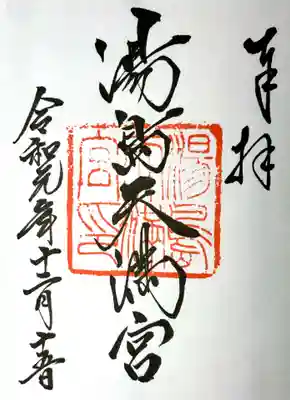 奉拝
湯島天満宮
令和元年十二月十五日
湯島
天満
宮印